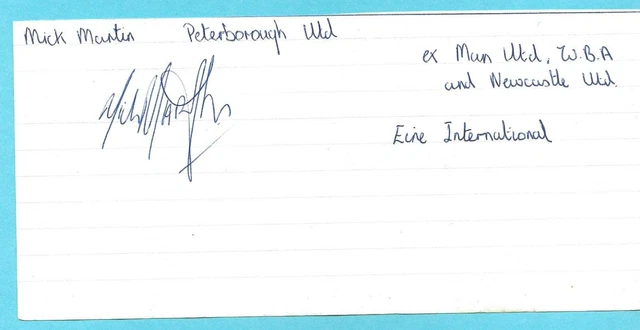 Mick Martin Peterborough Utd
ex Man Utd, W.B.A
and Newcastle Utd.
Eire International
Mick Martin